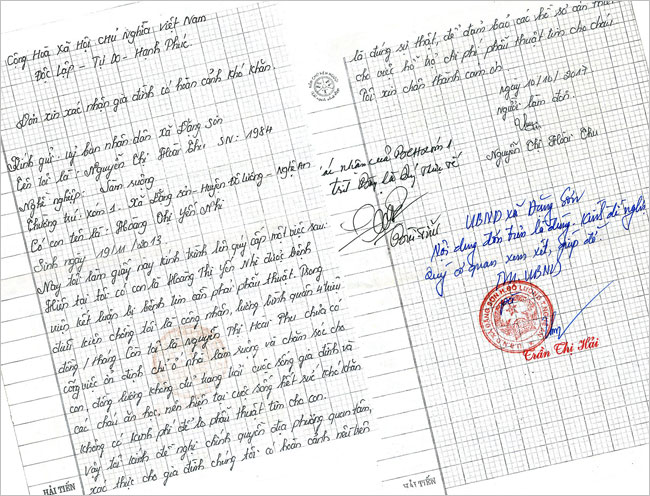 Cộng Hoà Xã Hội Chủ Nghĩa Việt Nam
Độc Lập - Tự Do - Hạnh Phúc
Đơn xin xác nhận gia đình có hoàn cảnh khó khăn.
Kính gửi: Uỷ ban nhân dân xã Đặng Sơn
Tên tôi là: Nguyễn Thị Hoài Thu SN: 1984
Nghề nghiệp: Làm ruộng
Thường trú: xóm 1 - Xã Đặng Sơn - Huyện Đô Lương - Nghệ An
Có con tên là: Hoàng Thị Yến Nhi
Sinh ngày 19/11/2013.
Nay tôi làm giấy này kính trình lên quý cấp một việc sau:
Hiện tại tôi có con là Hoàng Thị Yến Nhi được bệnh
viện kết luận bị bệnh tim cần phải phẫu thuật. Trong
đất triển chồng tôi là công nhân, lương bình quân 4 triệu
đồng / tháng. Còn tôi là Nguyễn Thị Hoài Thu chưa có
công việc ổn định chỉ ở nhà làm ruộng và chăm sóc cho
con, đồng lương không đủ trang trải cuộc sống gia đình và
các cháu ăn học, nên hiện tại cuộc sống hết sức khó khăn
không có kinh phí để lo phẫu thuật tim cho con.
Vậy tôi kính đề nghị chính quyền địa phương quan tâm,
xác thực cho gia đình chúng tôi có hoàn cảnh nêu trên
HẢI TIẾN
là đúng sự thật, để đảm bảo các hồ sơ cần thiết
cho việc hỗ trợ chi phí phẫu thuật tim cho cháu
Tôi xin chân thành cảm ơn
ngày 10/10/2017
người làm đơn
Thu
Nguyễn Thị Hoài Thu
xác nhận của BCH xóm 1
trên đây là đúng thực tế
UBND xã Đặng Sơn
Nội dung đơn trên là đúng. Kính đề nghị
Quý cơ quan xem xét, giúp đỡ.
TM UBND
Trần Thị Hải
HẢI TIẾN